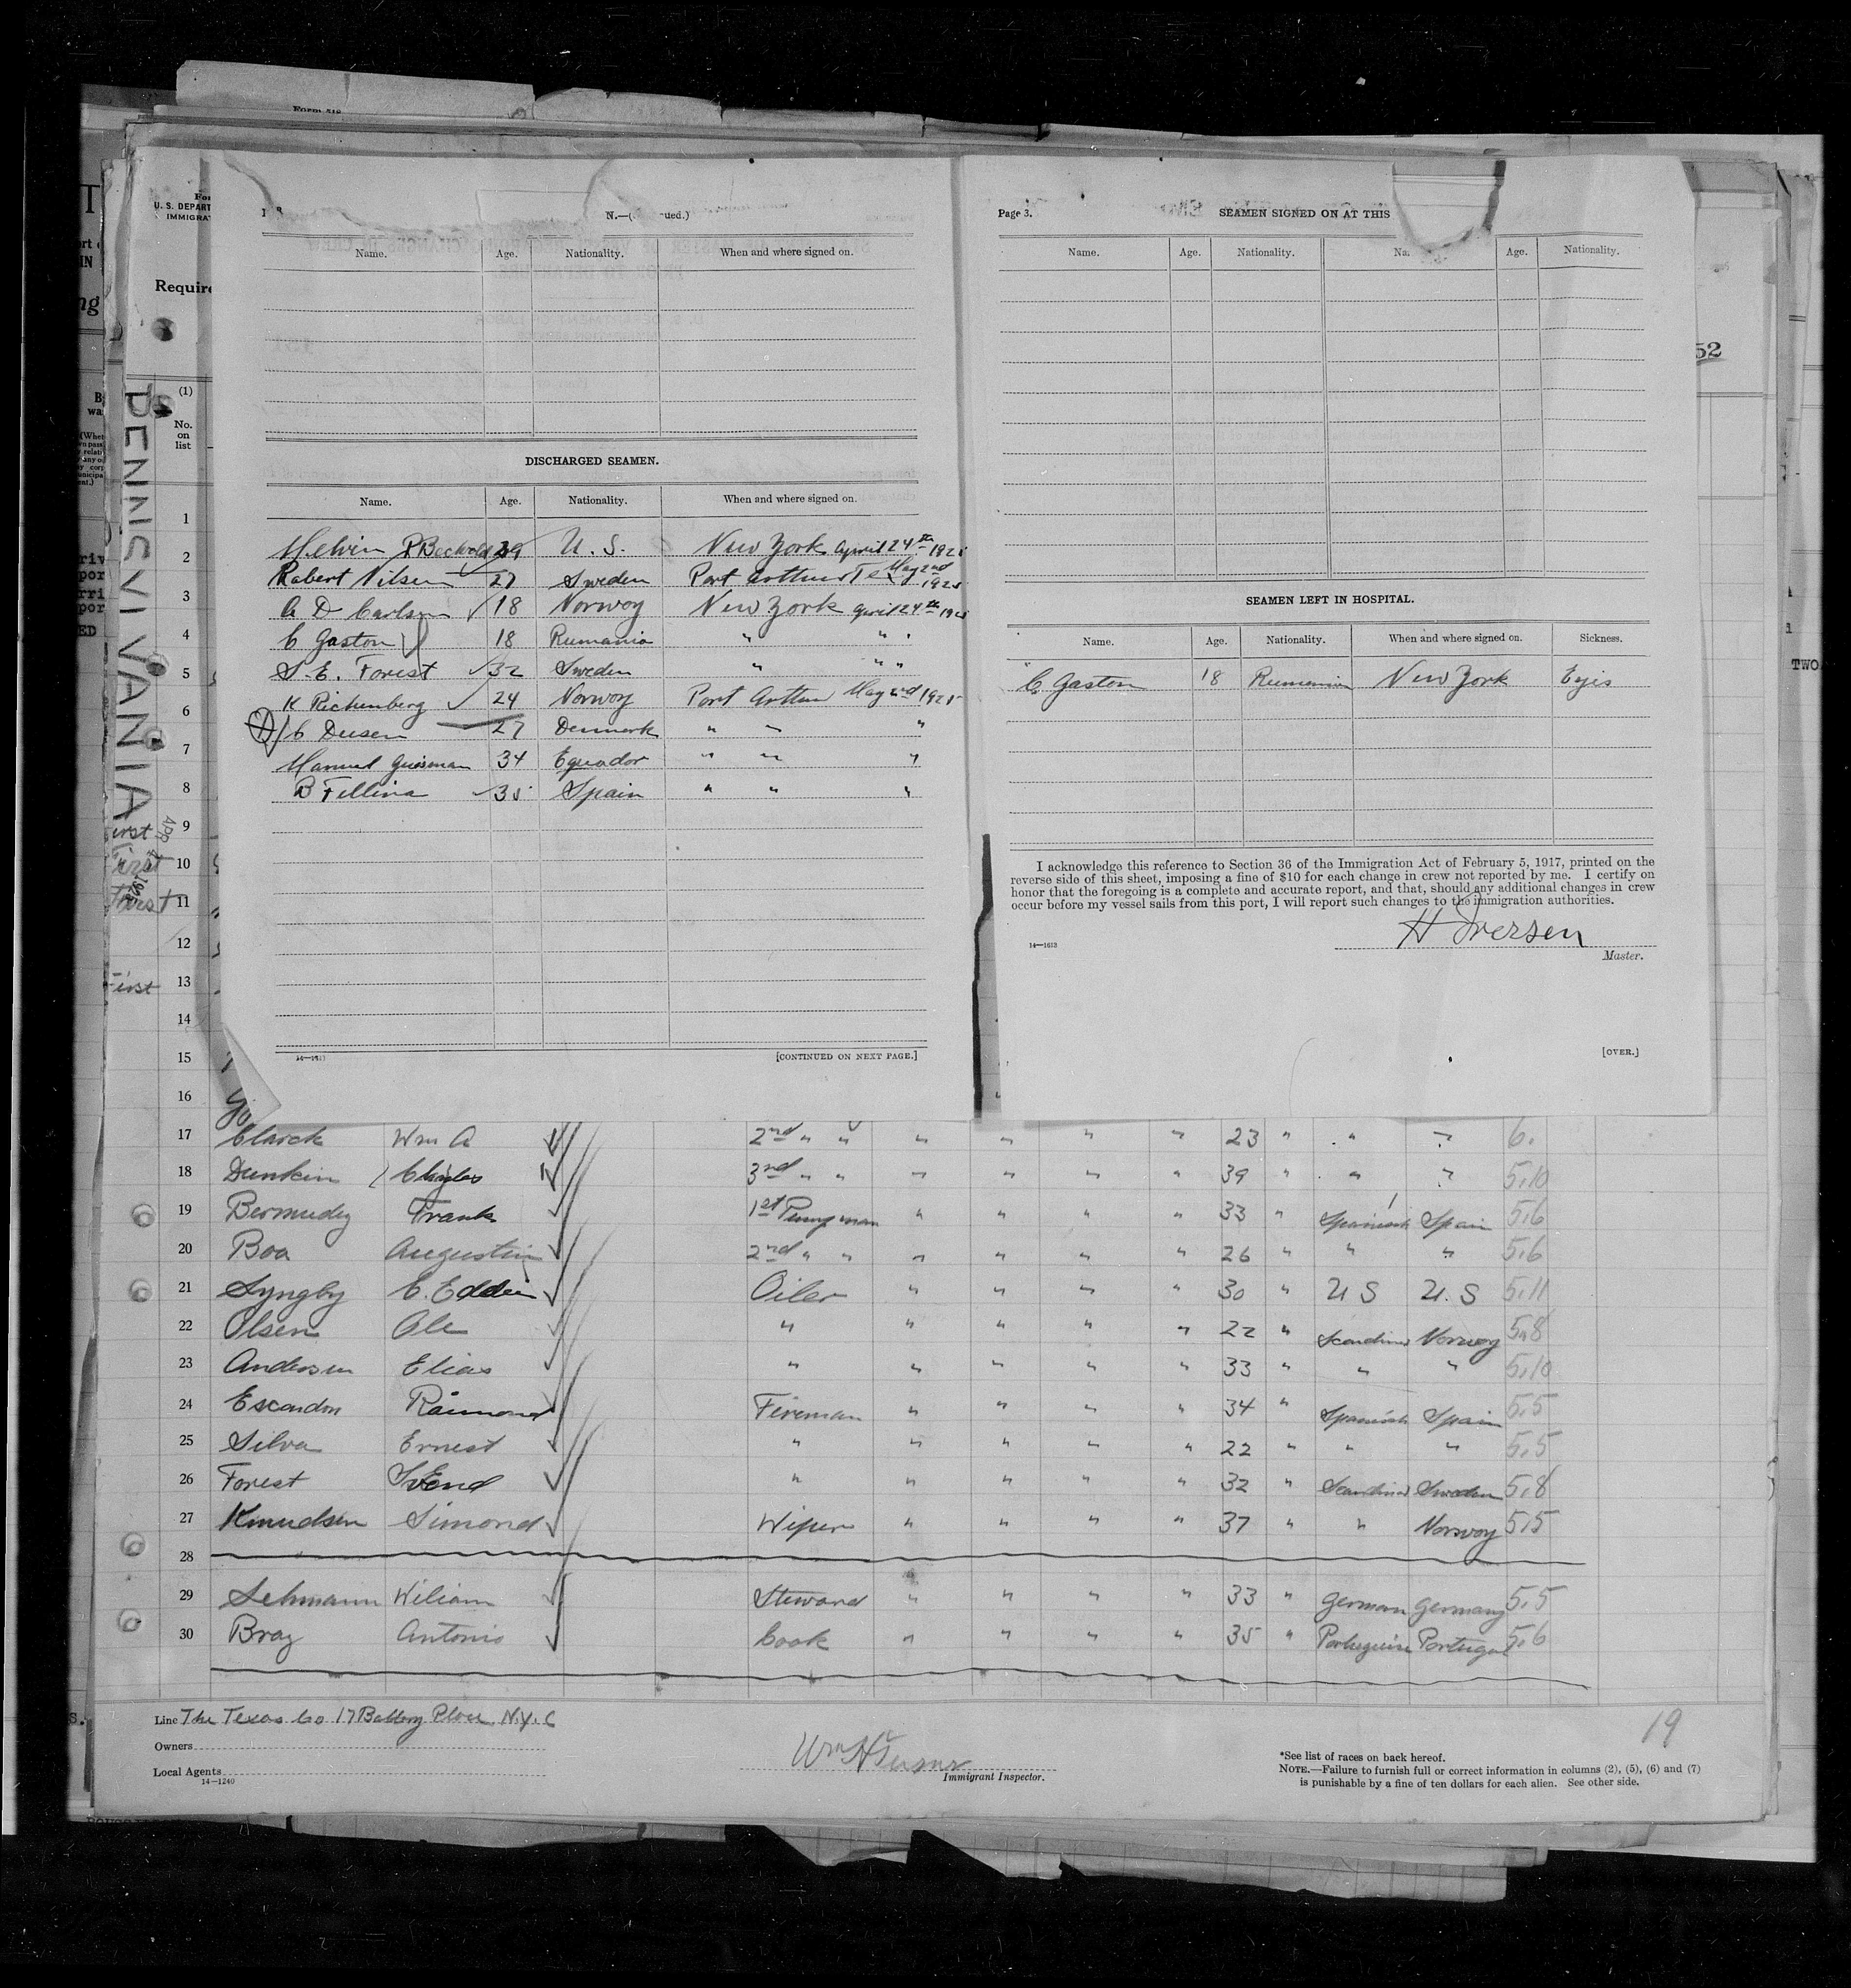 Form 518
U. S. DEPART
IMMIGRA
Require
(1)
No.
on
list
PENNSYLVANIA
N.—( ued.)
Name. Age. Nationality. When and where signed on.
DISCHARGED SEAMEN.
Name. Age. Nationality. When and where signed on.
Melvin 29 U. S. New York april 24th 1925
Robert Nilsen 27 Sweden Port Arthur Tex May 2nd 1925
A D Carlson 18 Norwoy New York april 24th 1925
C Gaston 18 Rumania " " "
S. E. Forest 32 Sweden " " "
K Richenberg 24 Norwoy Port Arthur May 2nd 1925
C Deisen 27 Denmark " " "
Manuel 34 Equador " " "
B Fellina 35 Spain " " "
14—1613
[CONTINUED ON NEXT PAGE.]
Page 3. SEAMEN SIGNED ON AT THIS
Name. Age. Nationality. Na Age. Nationality.
SEAMEN LEFT IN HOSPITAL.
Name. Age. Nationality. When and where signed on. Sickness.
C Gaston 18 Rumania New York Eyes
I acknowledge this reference to Section 36 of the Immigration Act of February 5, 1917, printed on the
reverse side of this sheet, imposing a fine of $10 for each change in crew not reported by me. I certify on
honor that the foregoing is a complete and accurate report, and that, should any additional changes in crew
occur before my vessel sails from this port, I will report such changes to the immigration authorities.
H Iversen
14—1613
Master.
[OVER.]
52
TWO
1
2
3
4
5
6
7
8
9
First 10
First 11
12
First 13
14
15
16
17 Clarck Wm A 2nd " " " " " " 23 " " " 6.
18 Dunkin Charles 3rd " " " " " " 39 " " " 5,10
19 Bermudez Frank 1st Pumpman " " " " 33 " Spanish Spain 5,6
20 Boa Augustin 2nd " " " " " " 26 " " " 5,6
21 Lyngby C. Eddin Oiler " " " " 30 " U S U. S 5,11
22 Olsen Ole " " " " " 22 " Scandinav Norwoy 5,8
23 Andersen Elias " " " " " 33 " " " 5,10
24 Escandon Raimond Fireman " " " " 34 " Spanish Spain 5,5
25 Silva Ernest " " " " " 22 " " " 5,5
26 Forest SvEnd " " " " " 32 " Scandinav Sweden 5,8
27 Knudsen Simond Wiper " " " " 37 " " Norwoy 5,5
28
29 Sehmann Wiliam Steward " " " " 33 " German Germany 5,5
30 Bray Antonio Cook " " " " 35 " Portuguise Portugal 5,6
Line The Texas Co 17 Battery Place N.Y.C
Owners
Local Agents
14—1240
Wm H Turner
Immigrant Inspector.
19
*See list of races on back hereof.
NOTE.—Failure to furnish full or correct information in columns (2), (5), (6) and (7)
is punishable by a fine of ten dollars for each alien. See other side.